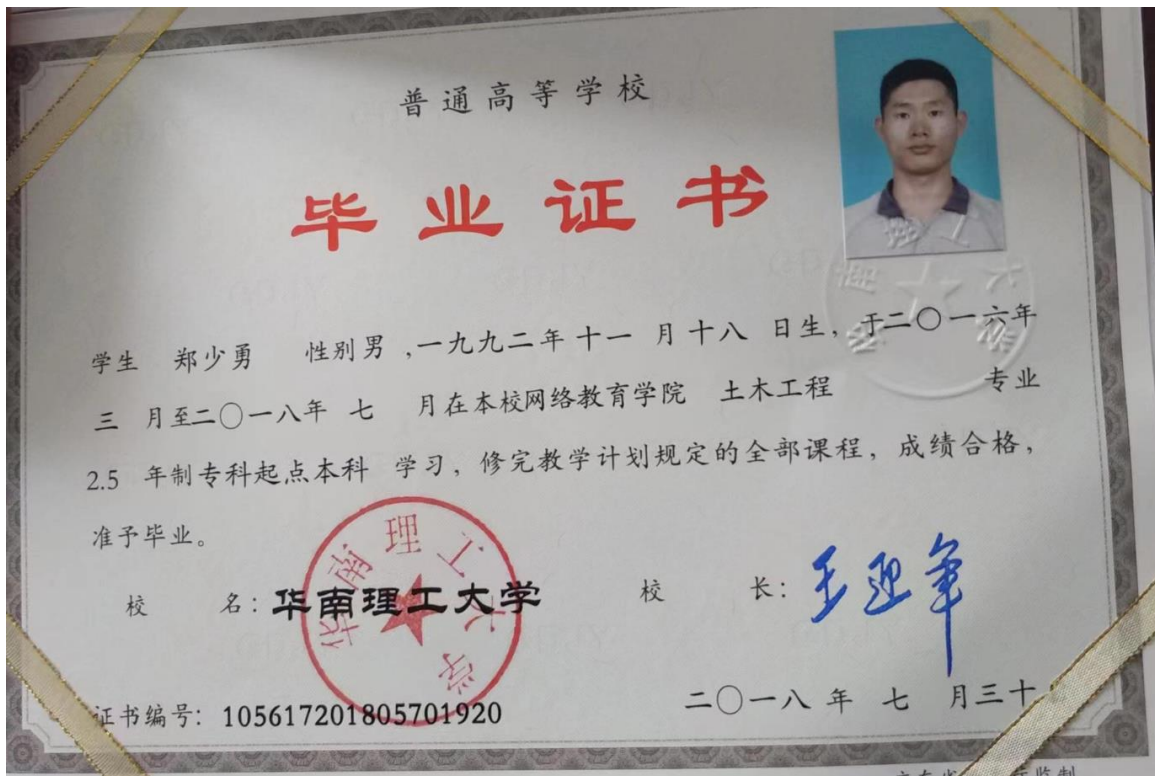 普通高等学校
毕业证书
学生 郑少勇 性别男,一九九二年十一月十八日生,于二〇一六年
三月至二〇一八年七月在本校网络教育学院 土木工程 专业
2.5 年制专科起点本科 学习,修完教学计划规定的全部课程,成绩合格,
准予毕业。
校 名:华南理工大学 校 长:王迎军
华南理工大学
华南理工大学
证书编号:105617201805701920 二〇一八年七月三十